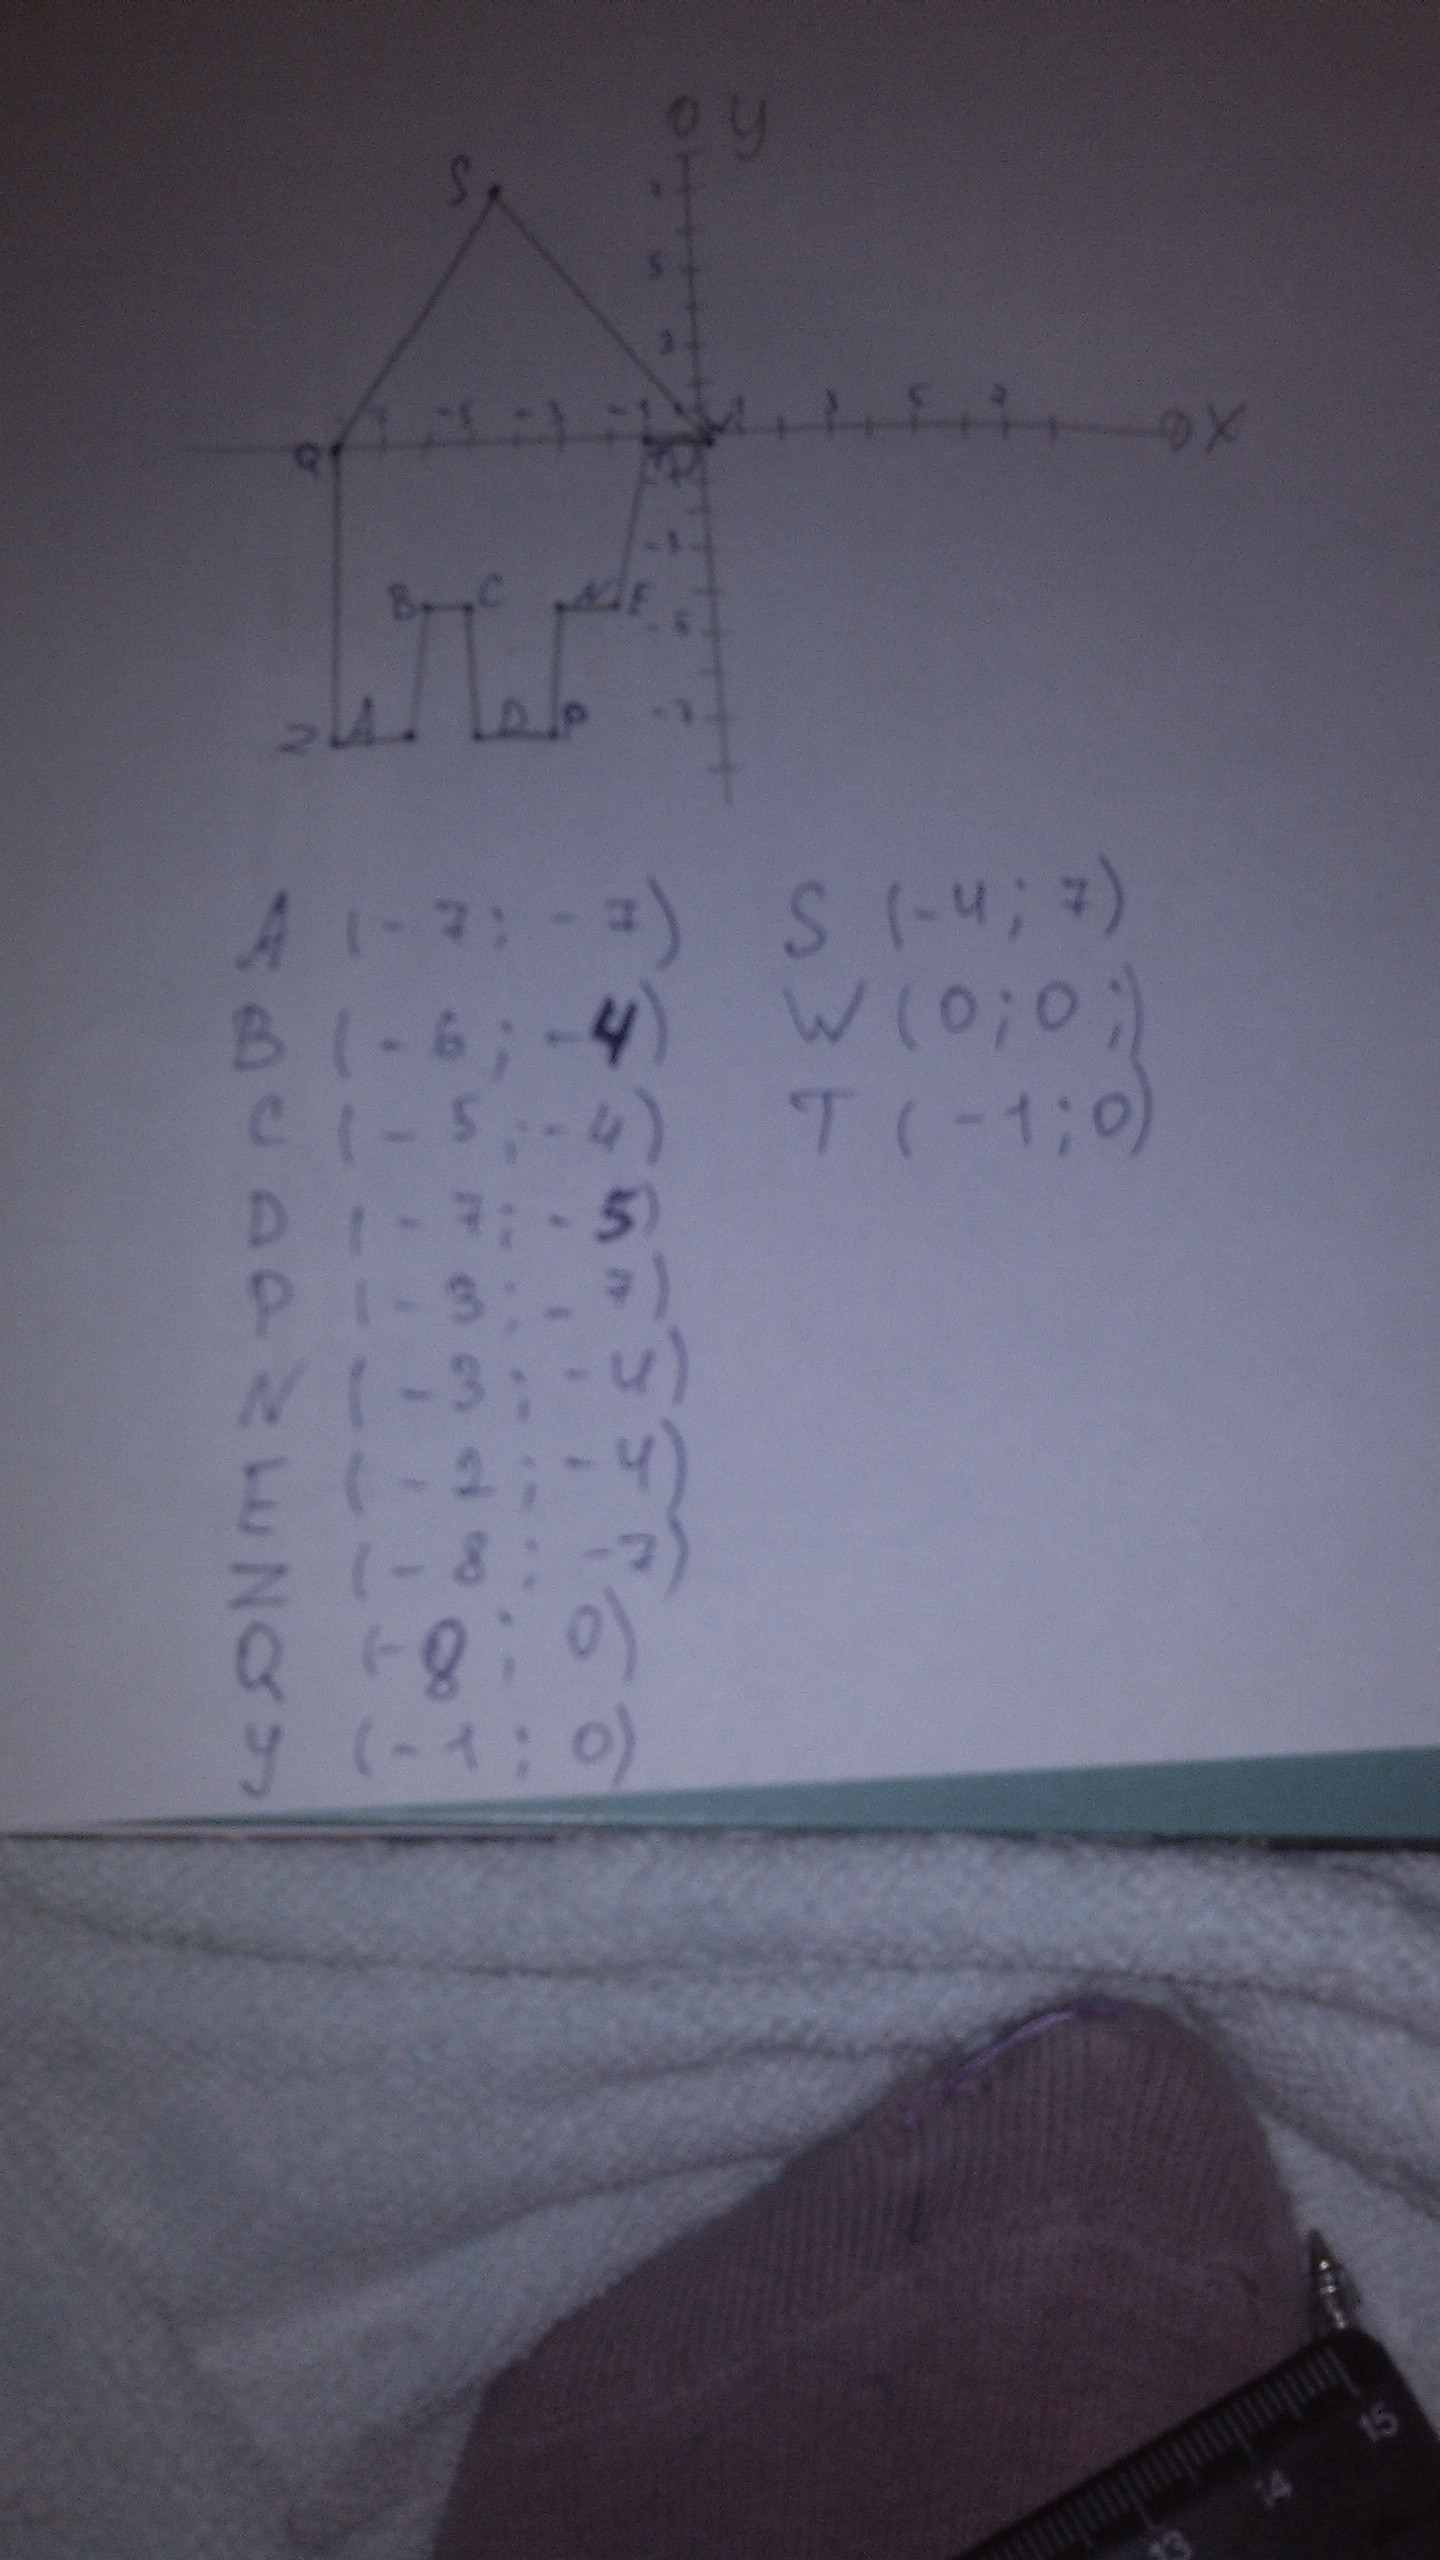 0 y
S
7
5
3
-7 -5 -3 -1 1 3 5 7 0 X
Q T W
-1
-3
B C N E
-5
Z A D P -7
A (-7; -7) S (-4; 7)
B (-6; -4) W (0; 0;)
C (-5; -4) T (-1; 0)
D (-7; -5)
P (-3; -7)
N (-3; -4)
E (-2; -4)
Z (-8; -7)
Q (-8; 0)
y (-1; 0)
15
14
13